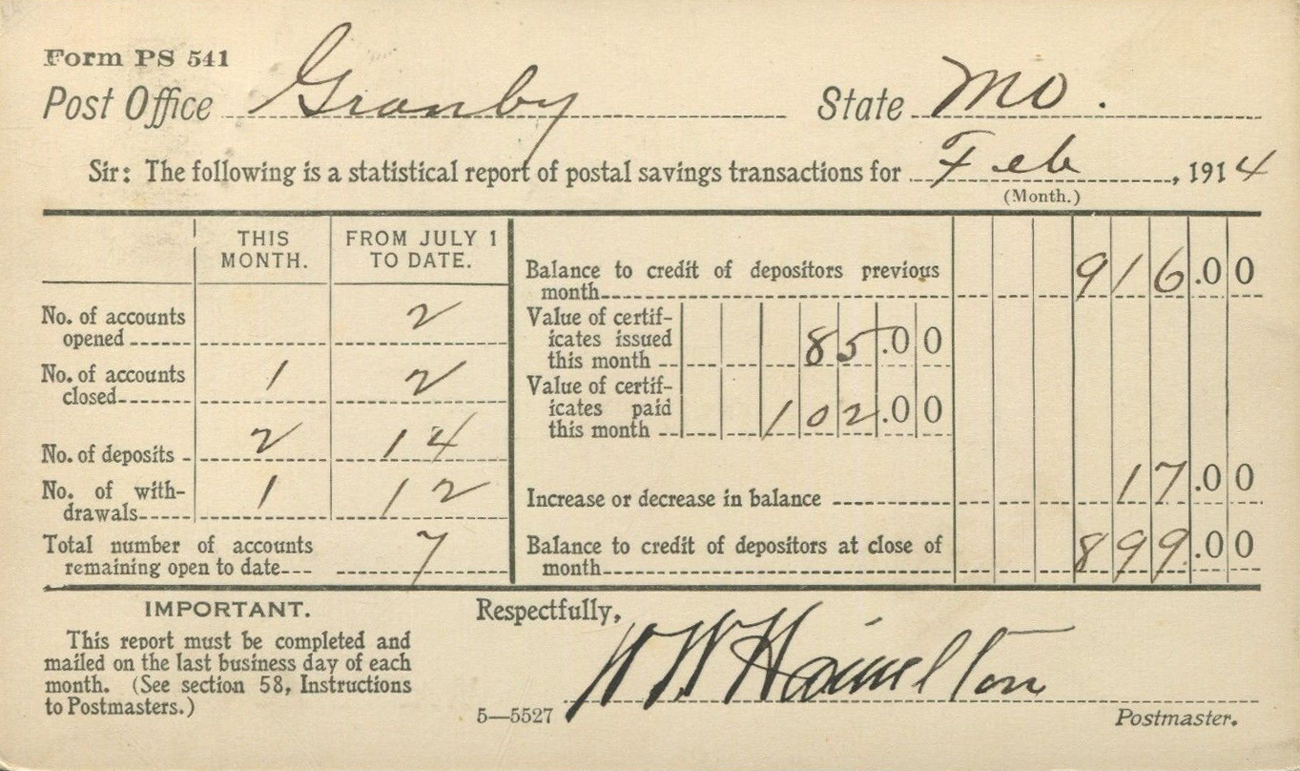 Form PS 541
Post Office Granby State Mo.
Sir: The following is a statistical report of postal savings transactions for Feb, 1914
(Month.)
THIS MONTH.
FROM JULY 1 TO DATE.
No. of accounts opened 2
No. of accounts closed 1 2
No. of deposits 2 14
No. of withdrawals 1 12
Total number of accounts remaining open to date 7
Balance to credit of depositors previous month 916.00
Value of certificates issued this month 85.00
Value of certificates paid this month 102.00
Increase or decrease in balance 17.00
Balance to credit of depositors at close of month 899.00
IMPORTANT.
This report must be completed and
mailed on the last business day of each
month. (See section 58, Instructions
to Postmasters.)
Respectfully,
W W Hamilton
5—5527
Postmaster.